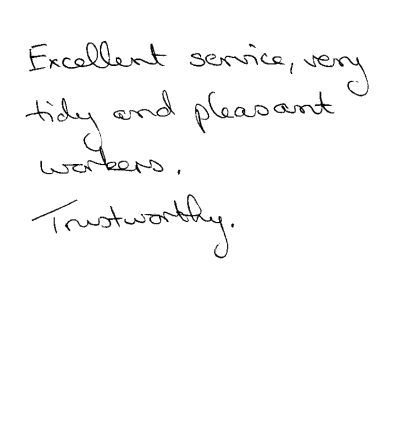 Excellent service, very
tidy and pleasant
workers.
Trustworthy.